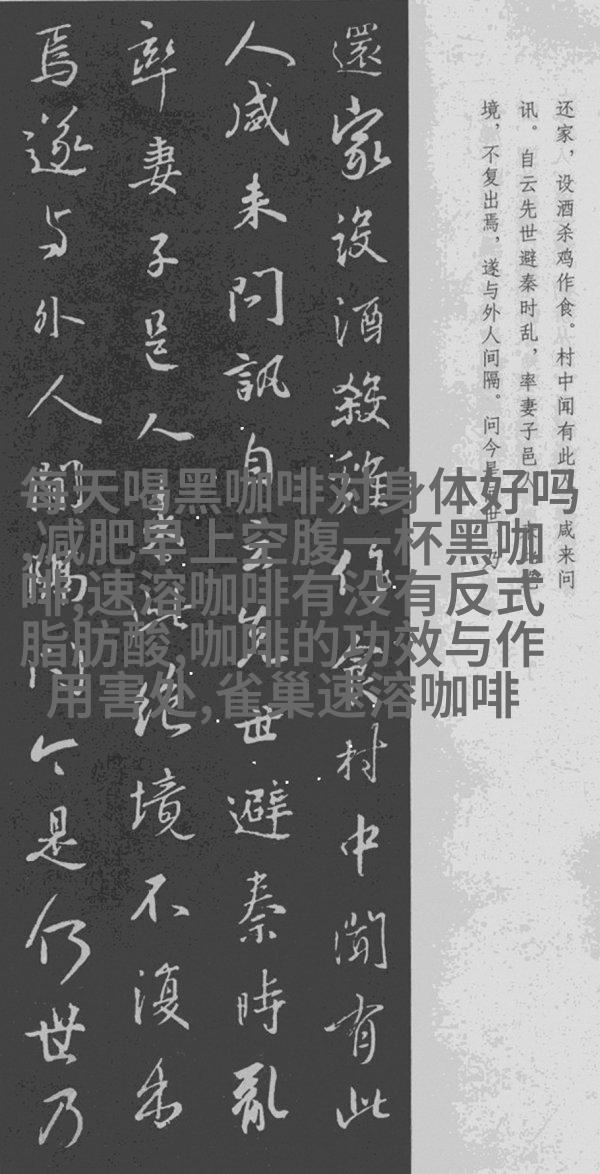 还家，设酒杀鸡作食。村中闻有此人，咸来问
讯。自云先世避秦时乱，率妻子邑人
境，不复出焉，遂与外人间隔。问今是何世，乃
還家設酒殺雞作食村中聞有此
人咸来問訊自云先世避秦時亂
率妻子邑人来此絶境不復出
焉遂与外人間隔問今是何世乃
每天喝黑咖啡对身体好吗
,减肥早上空腹一杯黑咖
啡,速溶咖啡有没有反式
脂肪酸,咖啡的功效与作
用害处,雀巢速溶咖啡